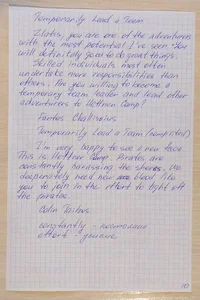 Temporarily Lead a Team
Zlatan, you are one of the adventurers
with the most potential I've seen. You
will definitely goan to do great things.
Skilled individuals most often
undertake more responsibilities than
others. Are you willing to become a
temporary team leader and lead other
adventurers to Hettner Camp?
Fantos
Temporarily Lead a Team (completed)
I'm very happy to see a new face.
This is Hettner Camp. Pirates are
constantly harassing the shores. We
desperately need new blood like
you to join in the effort to fight off
the pirates.
Colin
constantly - постоянно
effort - усилие